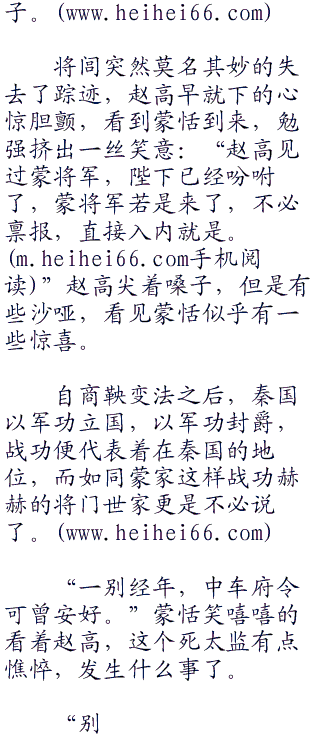 子。(www.heihei66.com)
将闾突然莫名其妙的失
去了踪迹，赵高早就下的心
惊胆颤，看到蒙恬到来，勉
强挤出一丝笑意：“赵高见
过蒙将军，陛下已经吩咐
了，蒙将军若是来了，不必
禀报，直接入内就是。
(m.heihei66.com手机阅
读)”赵高尖着嗓子，但是有
些沙哑，看见蒙恬似乎有一
些惊喜。
自商鞅变法之后，秦国
以军功立国，以军功封爵，
战功便代表着在秦国的地
位，而如同蒙家这样战功赫
赫的将门世家更是不必说
了。(www.heihei66.com)
“一别经年，中车府令
可曾安好。”蒙恬笑嘻嘻的
看着赵高，这个死太监有点
憔悴，发生什么事了。
“别